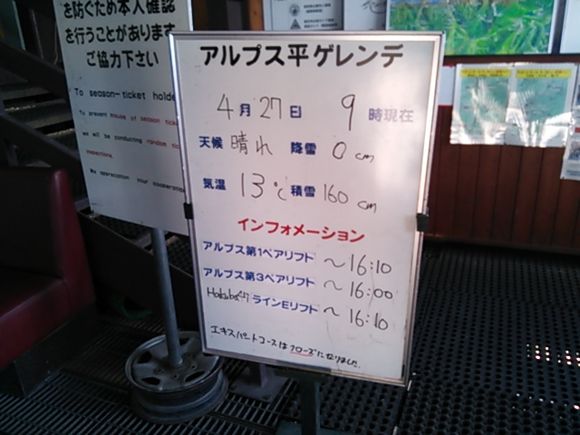 を防ぐため本人確認
を行うことがあります
ご協力下さい
To season-ticket holde
To prevent misuse of season tic
we will be conducting random tic
inspections.
We appreciate your cooperation
アルプス平ゲレンデ
4月27日 9時現在
天候 晴れ 降雪 0cm
気温 13℃ 積雪 160cm
インフォメーション
アルプス第1ペアリフト 〜16:10
アルプス第3ペアリフト 〜16:00
ラインEリフト 〜16:10
エキスパートコースはクローズになりました。